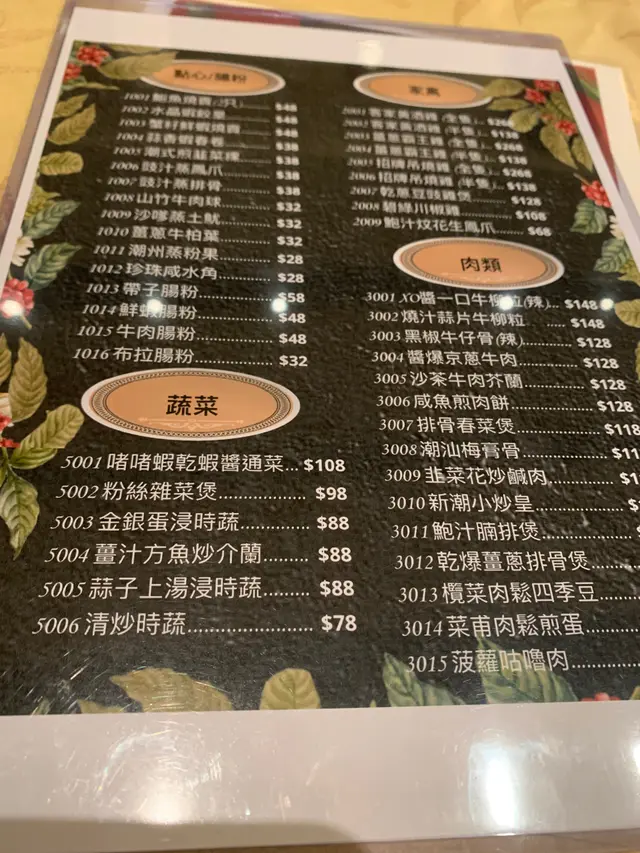 點心/腸粉
1001 鮑魚燒賣(2只) $48
1002 水晶蝦餃皇 $48
1003 蟹籽鮮蝦燒賣 $48
1004 蒜香蝦春卷 $38
1005 潮式煎韮菜粿 $38
1006 豉汁蒸鳳爪 $38
1007 豉汁蒸排骨 $38
1008 山竹牛肉球 $32
1009 沙嗲蒸土魷 $32
1010 薑蔥牛柏葉 $32
1011 潮州蒸粉果 $28
1012 珍珠咸水角 $28
1013 帶子腸粉 $58
1014 鮮蝦腸粉 $48
1015 牛肉腸粉 $48
1016 布拉腸粉 $32
蔬菜
5001 啫啫蝦乾蝦醬通菜... $108
5002 粉絲雜菜煲 $98
5003 金銀蛋浸時蔬 $88
5004 薑汁方魚炒介蘭 $88
5005 蒜子上湯浸時蔬 $88
5006 清炒時蔬 $78
家禽
2001 客家黃酒雞(全隻) $268
2002 客家黃酒雞(半隻) $138
2003 薑蔥霸王雞(全隻) $268
2004 薑蔥霸王雞(半隻) $138
2005 招牌吊燒雞(全隻) $268
2006 招牌吊燒雞(半隻) $138
2007 乾蔥豆豉雞煲 $128
2008 碧綠川椒雞 $168
2009 鮑汁炆花生鳳爪 $68
肉類
3001 XO醬一口牛柳粒(辣)... $148
3002 燒汁蒜片牛柳粒 $148
3003 黑椒牛仔骨(辣) $128
3004 醬爆京蔥牛肉 $128
3005 沙茶牛肉芥蘭 $128
3006 咸魚煎肉餅 $128
3007 排骨春菜煲 $118
3008 潮汕梅膏骨 $11
3009 韭菜花炒鹹肉 $1
3010 新潮小炒皇 $
3011 鮑汁腩排煲
3012 乾爆薑蔥排骨煲
3013 欖菜肉鬆四季豆
3014 菜甫肉鬆煎蛋
3015 菠蘿咕嚕肉